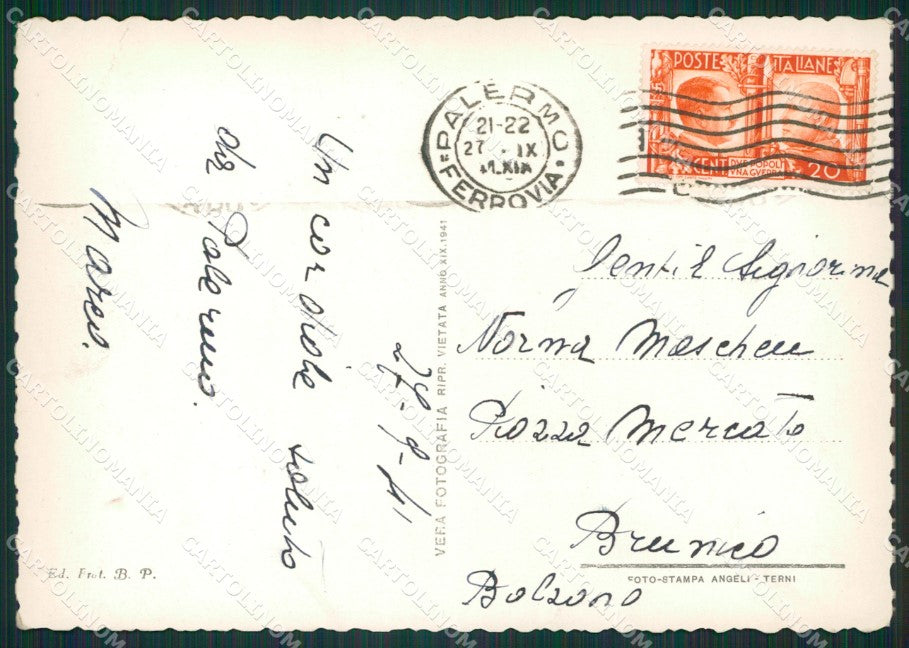 27-9-41
Un cordiale saluto
da Palermo.
Marco.
Ed. Fot. B. P.
VERA FOTOGRAFIA RIPR. VIETATA ANNO XIX.1941
PALERMO
21-22
27 IX
XIX
FERROVIA
POSTE ITALIANE
CENT DVE POPOLI 20
VNA GVERRA
Gentil Signorina
Norma
Piazza Mercato
Brunico
FOTO-STAMPA ANGELI - TERNI
Bolzano
CARTOLINOMANIA